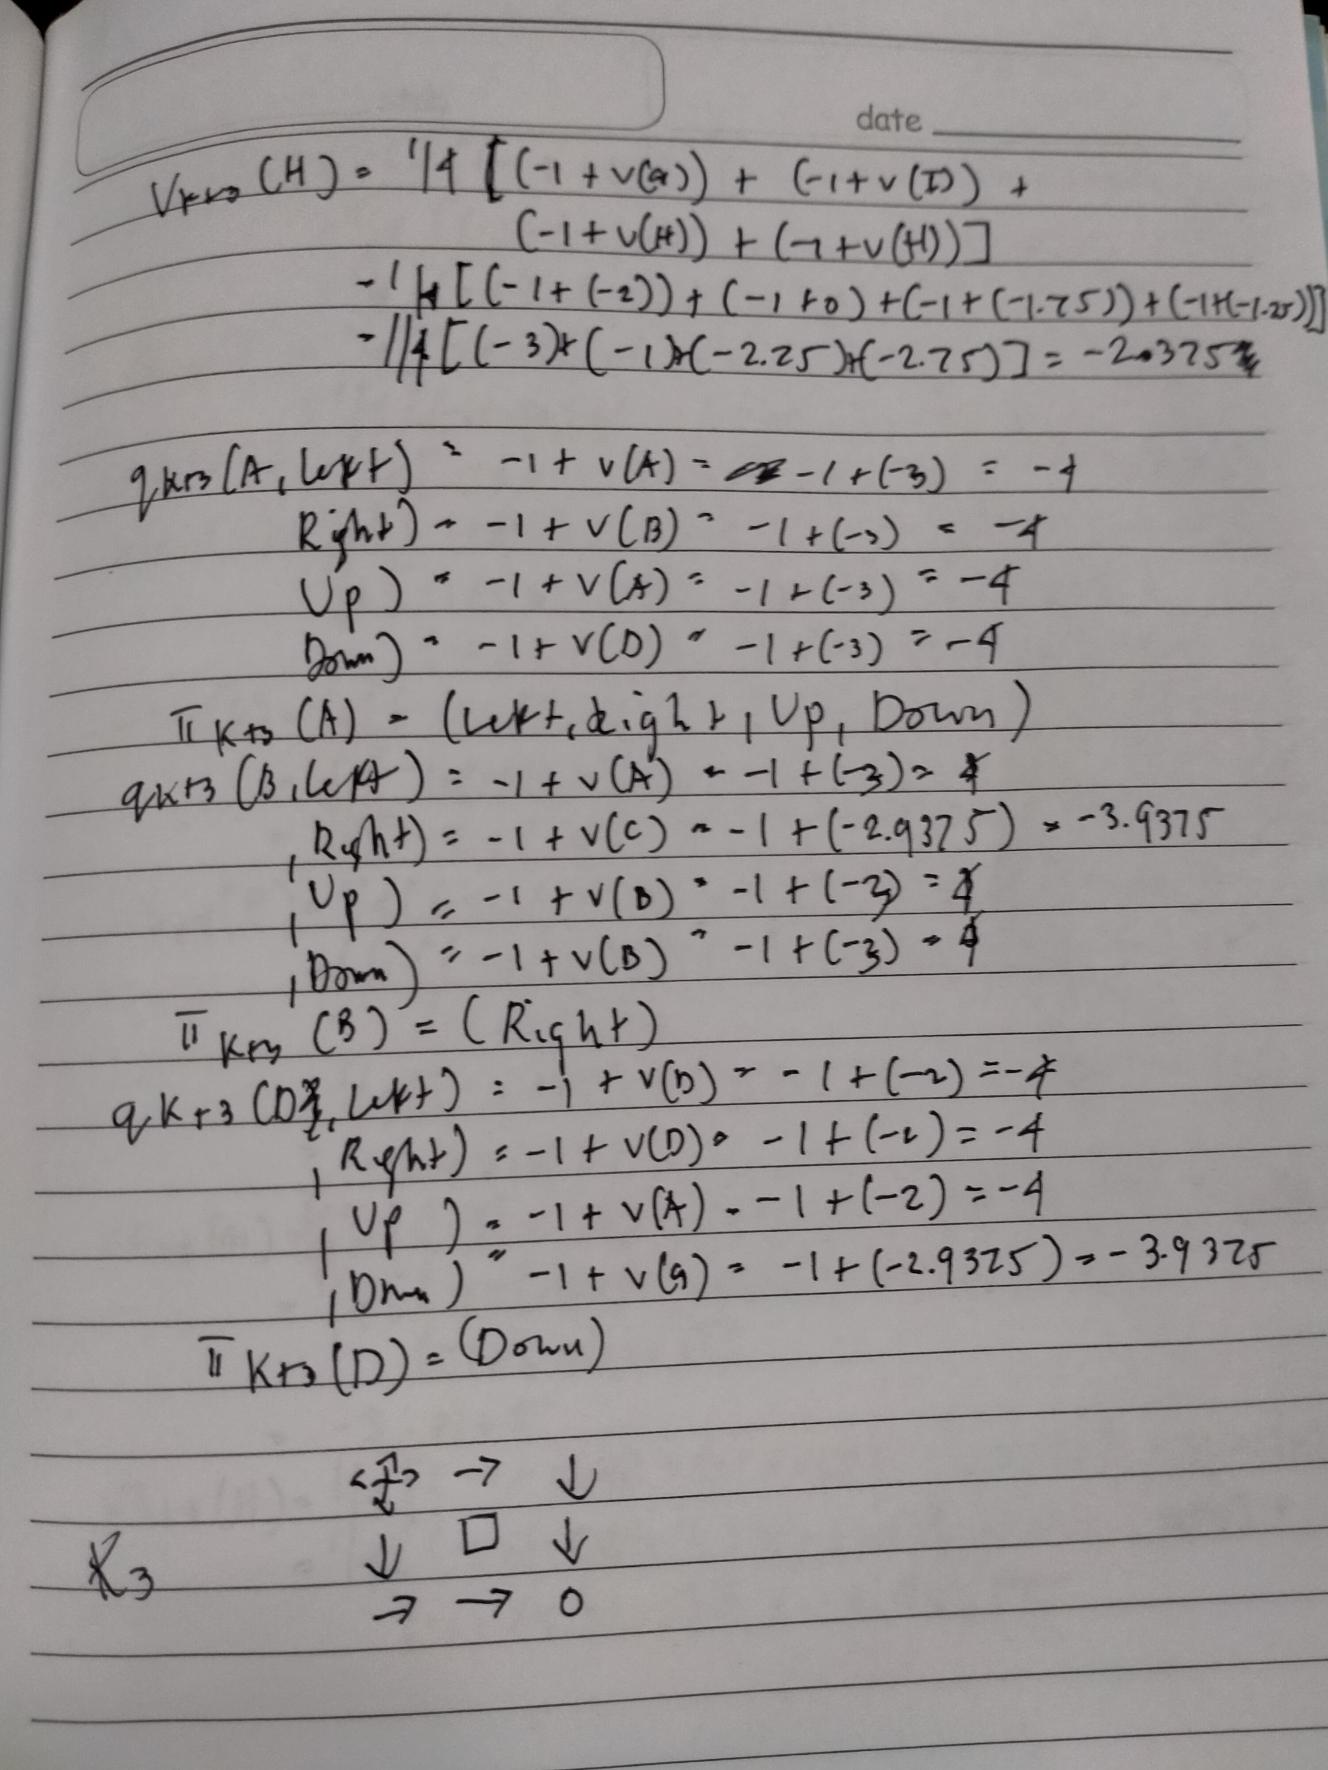 date
V_{k+3} (H) = 1/4 [(-1 + v(G)) + (-1 + v(I)) +
(-1 + v(H)) + (-1 + v(H))]
= 1/4 [(-1 + (-2)) + (-1 + 0) + (-1 + (-1.75)) + (-1 + (-1.75))]
= 1/4 [(-3) + (-1) + (-2.75) + (-2.75)] = -2.375
q_{k+3} (A, Left) = -1 + v(A) = -1 + (-3) = -4
Right) = -1 + v(B) = -1 + (-3) = -4
Up) = -1 + v(A) = -1 + (-3) = -4
Down) = -1 + v(D) = -1 + (-3) = -4
π_{k+3} (A) = (Left, Right, Up, Down)
q_{k+3} (B, Left) = -1 + v(A) = -1 + (-3) = 4
, Right) = -1 + v(C) = -1 + (-2.9375) = -3.9375
, Up) = -1 + v(B) = -1 + (-3) = 4
, Down) = -1 + v(B) = -1 + (-3) = 4
π_{k+3} (B) = (Right)
q_{k+3} (D, Left) = -1 + v(D) = -1 + (-2) = -4
, Right) = -1 + v(D) = -1 + (-2) = -4
, Up) = -1 + v(A) = -1 + (-2) = -4
, Down) = -1 + v(G) = -1 + (-2.9375) = -3.9375
π_{k+3} (D) = (Down)
→ ↓
K3 ↓ □ ↓
→ → 0